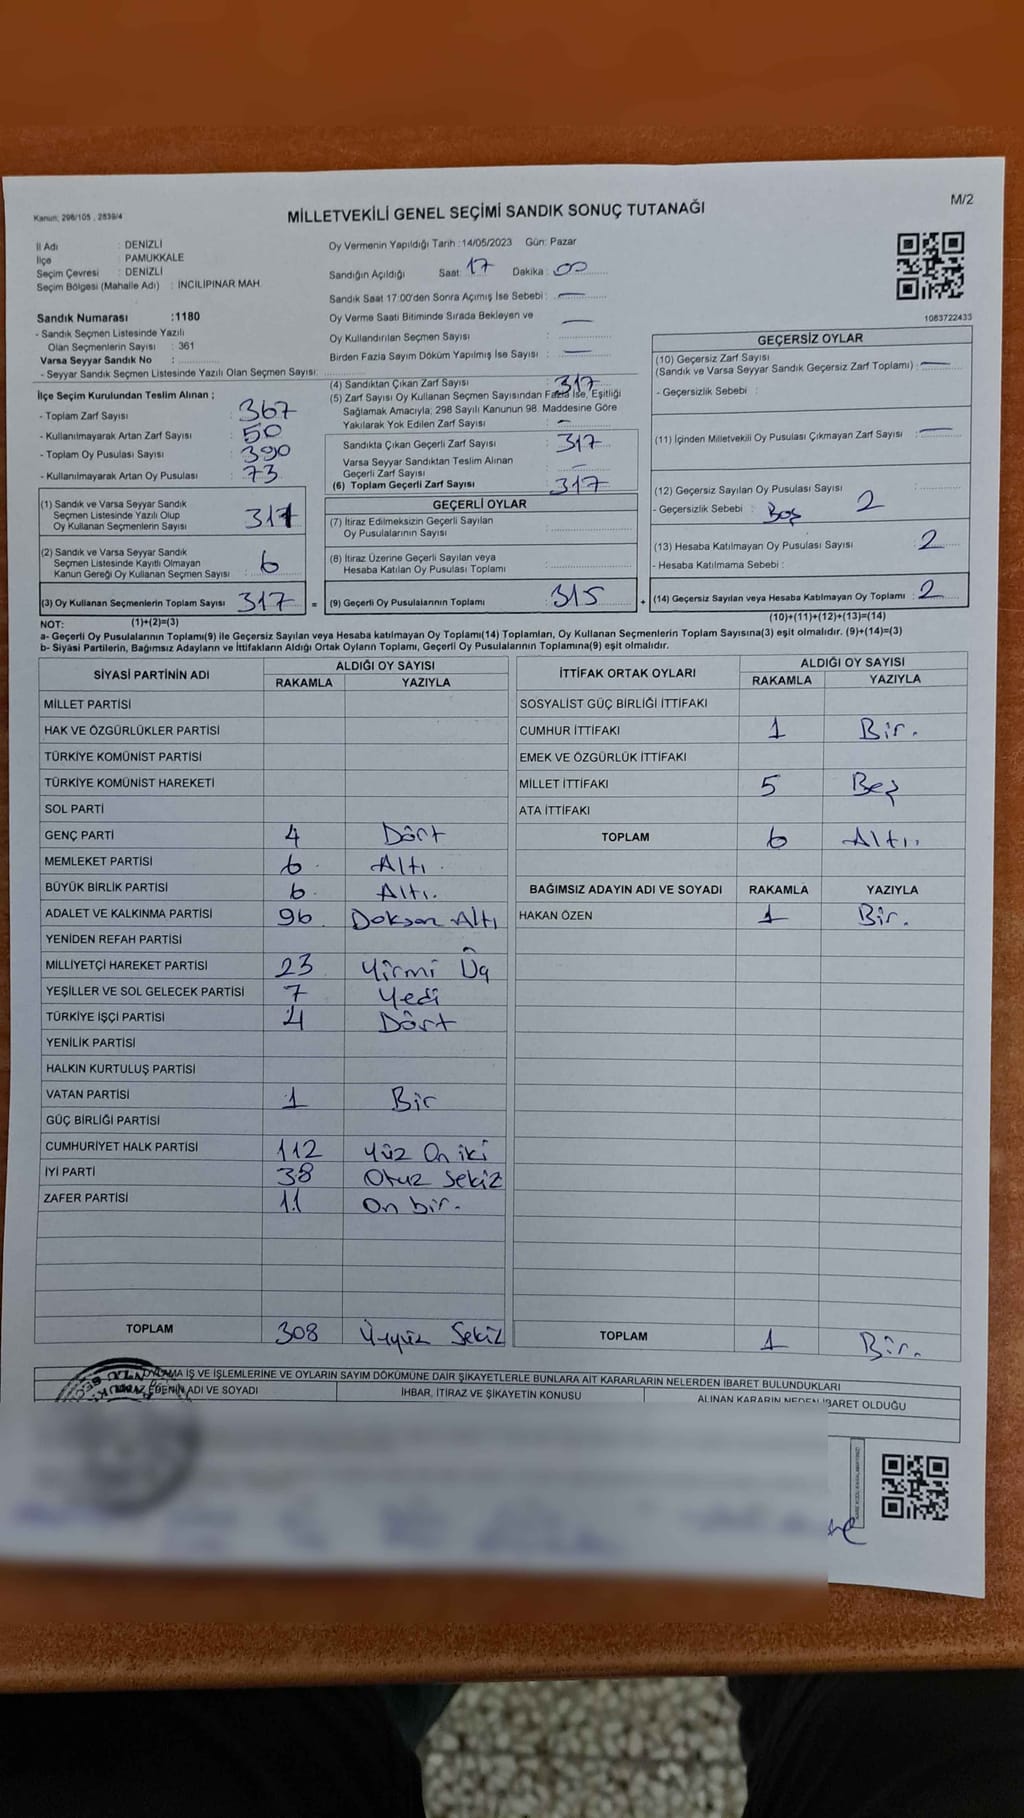 M/2
Kanun: 298/105 , 2839/4
MİLLETVEKİLİ GENEL SEÇİMİ SANDIK SONUÇ TUTANAĞI
İl Adı : DENİZLİ
İlçe : PAMUKKALE
Seçim Çevresi : DENİZLİ
Seçim Bölgesi (Mahalle Adı) : İNCİLİPINAR MAH.
Sandık Numarası :1180
- Sandık Seçmen Listesinde Yazılı
Olan Seçmenlerin Sayısı : 361
Varsa Seyyar Sandık No :
- Seyyar Sandık Seçmen Listesinde Yazılı Olan Seçmen Sayısı:
Oy Vermenin Yapıldığı Tarih :14/05/2023 Gün: Pazar
Sandığın Açıldığı Saat: 17 Dakika : 00
Sandık Saat 17:00'den Sonra Açımış İse Sebebi : —
Oy Verme Saati Bitiminde Sırada Bekleyen ve
Oy Kullandırılan Seçmen Sayısı : —
Birden Fazla Sayım Döküm Yapılmış İse Sayısı : —
1083722433
İlçe Seçim Kurulundan Teslim Alınan ;
- Toplam Zarf Sayısı : 367
- Kullanılmayarak Artan Zarf Sayısı : 50
- Toplam Oy Pusulası Sayısı : 390
- Kullanılmayarak Artan Oy Pusulası : 73
(1) Sandık ve Varsa Seyyar Sandık
Seçmen Listesinde Yazılı Olup
Oy Kullanan Seçmenlerin Sayısı 311
(2) Sandık ve Varsa Seyyar Sandık
Seçmen Listesinde Kayıtlı Olmayan
Kanun Gereği Oy Kullanan Seçmen Sayısı : 6
(3) Oy Kullanan Seçmenlerin Toplam Sayısı 317
(1)+(2)=(3)
(4) Sandıktan Çıkan Zarf Sayısı : 317
(5) Zarf Sayısı Oy Kullanan Seçmen Sayısından Fazla İse, Eşitliği
Sağlamak Amacıyla; 298 Sayılı Kanunun 98. Maddesine Göre
Yakılarak Yok Edilen Zarf Sayısı : —
Sandıkta Çıkan Geçerli Zarf Sayısı : 317
Varsa Seyyar Sandıktan Teslim Alınan
Geçerli Zarf Sayısı : —
(6) Toplam Geçerli Zarf Sayısı : 317
GEÇERLİ OYLAR
(7) İtiraz Edilmeksizin Geçerli Sayılan
Oy Pusulasının Sayısı :
(8) İtiraz Üzerine Geçerli Sayılan veya
Hesaba Katılan Oy Pusulası Toplamı :
= (9) Geçerli Oy Pusulalarının Toplamı 315
GEÇERSİZ OYLAR
(10) Geçersiz Zarf Sayısı
(Sandık ve Varsa Seyyar Sandık Geçersiz Zarf Toplamı) : —
- Geçersizlik Sebebi :
(11) İçinden Milletvekili Oy Pusulası Çıkmayan Zarf Sayısı : —
(12) Geçersiz Sayılan Oy Pusulası Sayısı : 2
- Geçersizlik Sebebi : Boş
(13) Hesaba Katılmayan Oy Pusulası Sayısı : 2
- Hesaba Katılmama Sebebi :
+ (14) Geçersiz Sayılan veya Hesaba Katılmayan Oy Toplamı : 2
(10)+(11)+(12)+(13)=(14)
NOT:
a- Geçerli Oy Pusulalarının Toplamı(9) ile Geçersiz Sayılan veya Hesaba katılmayan Oy Toplamı(14) Toplamları, Oy Kullanan Seçmenlerin Toplam Sayısına(3) eşit olmalıdır. (9)+(14)=(3)
b- Siyasi Partilerin, Bağımsız Adayların ve İttifakların Aldığı Ortak Oyların Toplamı, Geçerli Oy Pusulalarının Toplamına(9) eşit olmalıdır.
SİYASİ PARTİNİN ADI ALDIĞI OY SAYISI
RAKAMLA YAZIYLA
MİLLET PARTİSİ
HAK VE ÖZGÜRLÜKLER PARTİSİ
TÜRKİYE KOMÜNİST PARTİSİ
TÜRKİYE KOMÜNİST HAREKETİ
SOL PARTİ
GENÇ PARTİ 4 Dört
MEMLEKET PARTİSİ 6 Altı
BÜYÜK BİRLİK PARTİSİ 6 Altı.
ADALET VE KALKINMA PARTİSİ 96 Doksan Altı
YENİDEN REFAH PARTİSİ
MİLLİYETÇİ HAREKET PARTİSİ 23 Yirmi Üç
YEŞİLLER VE SOL GELECEK PARTİSİ 7 Yedi
TÜRKİYE İŞÇİ PARTİSİ 4 Dört
YENİLİK PARTİSİ
HALKIN KURTULUŞ PARTİSİ
VATAN PARTİSİ 1 Bir
GÜÇ BİRLİĞİ PARTİSİ
CUMHURİYET HALK PARTİSİ 112 Yüz On iki
İYİ PARTİ 38 Otuz Sekiz
ZAFER PARTİSİ 11 On bir.
TOPLAM 308 Üçyüz Sekiz
İTTİFAK ORTAK OYLARI ALDIĞI OY SAYISI
RAKAMLA YAZIYLA
SOSYALİST GÜÇ BİRLİĞİ İTTİFAKI
CUMHUR İTTİFAKI 1 Bir.
EMEK VE ÖZGÜRLÜK İTTİFAKI
MİLLET İTTİFAKI 5 Beş
ATA İTTİFAKI
TOPLAM 6 Altı.
BAĞIMSIZ ADAYIN ADI VE SOYADI RAKAMLA YAZIYLA
HAKAN ÖZEN 1 Bir.
TOPLAM 1 Bir.
OYLAMA İŞ VE İŞLEMLERİNE VE OYLARIN SAYIM DÖKÜMÜNE DAİR ŞİKAYETLERLE BUNLARA AİT KARARLARIN NELERDEN İBARET BULUNDUKLARI
EDENİN ADI VE SOYADI İHBAR, İTİRAZ VE ŞİKAYETİN KONUSU ALINAN KARARIN NEDEN İBARET OLDUĞU